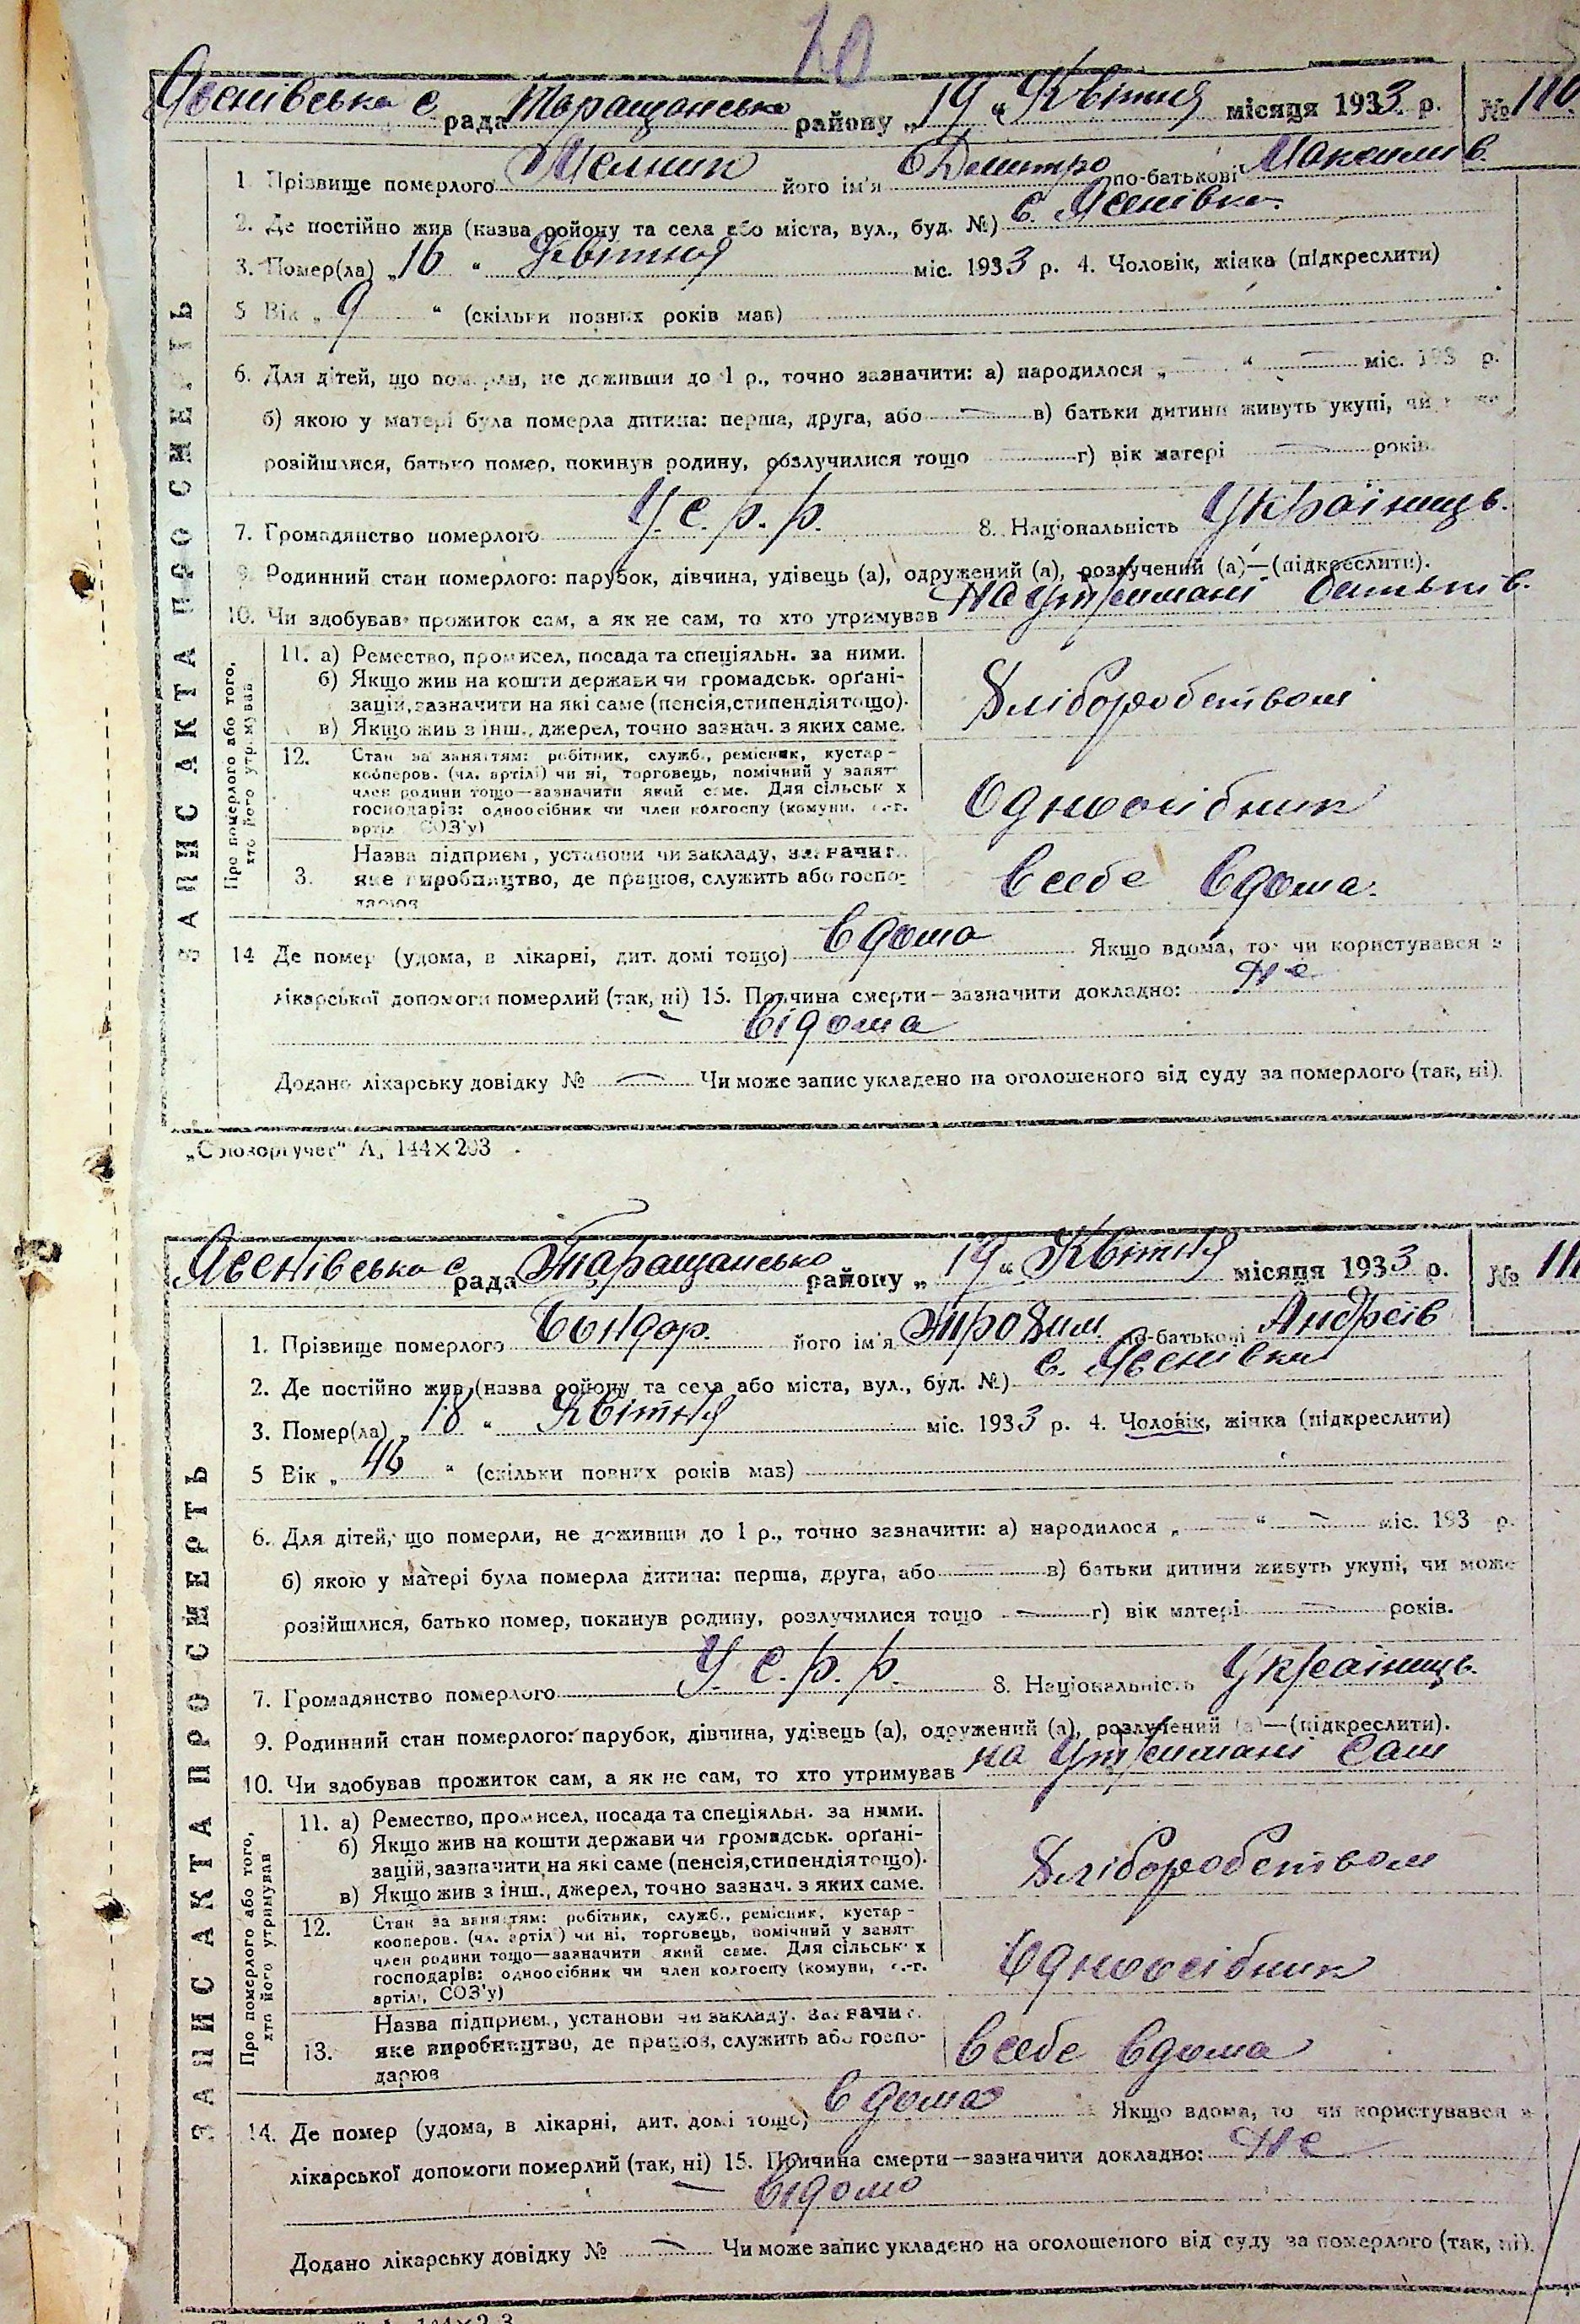 10
Ясенівська с рада Таращанська району „19“ Квітня місяця 1933 р. № 110
ЗАПИС АКТА ПРО СМЕРТЬ
1 Прізвище померлого Мельник його ім'я Дмитро по-батькові Максимів.
2. Де постійно жив (назва району та села або міста, вул., буд. №) с. Ясенівка.
3. Помер(ла) „16“ Квітня міс. 1933 р. 4. Чоловік, жінка (підкреслити)
5 Вік „9“ (скільки повних років мав)
6. Для дітей, що померли, не доживши до 1 р., точно зазначити: а) народилося „—“ — міс. 193 р.
б) якою у матері була померла дитина: перша, друга, або — в) батьки дитини живуть укупі, чи може
розійшлися, батько помер, покинув родину, розлучилися тощо — г) вік матері — років.
7. Громадянство померлого У.С.Р.Р. 8. Національність Українць.
9. Родинний стан померлого: парубок, дівчина, удівець (а), одружений (а), розлучений (а)—(підкреслити).
10. Чи здобував прожиток сам, а як не сам, то хто утримував На утримані батьків.
Про померлого або того, хто його утримував
11. а) Ремество, промисел, посада та спеціяльн. за ними.
б) Якщо жив на кошти держави чи громадськ. орґані-
зацій, зазначити на які саме (пенсія, стипендія тощо).
в) Якщо жив з інш., джерел, точно зазнач. з яких саме.
Хліборобством
12. Стан за заняттям: робітник, служб., ремісник, кустар-
кооперов. (чл. артілі) чи ні, торговець, помічний у занят.
член родини тощо—зазначити який саме. Для сільськ х
господарів: одноосібник чи член колгоспу (комуни, с.-г.
артіл СОЗ'у)
Одноосібник
Назва підприєм., установи чи закладу, зазначит.
3. яке виробництво, де працює, служить або госпо-
дарює
в себе вдома.
14 Де помер (удома, в лікарні, дит. домі тощо) вдома Якщо вдома, то чи користувався з
лікарської допомоги померлий (так, ні) 15. Причина смерти—зазначити докладно: Не
відома
Додано лікарську довідку № — Чи може запис укладено на оголошеного від суду за померлого (так, ні).
„Союзоргучет“ А, 144×203
Ясенівська с рада Таращансько району „19“ Квітня місяця 1933 р. № 111
ЗАПИС АКТА ПРО СМЕРТЬ
1. Прізвище померлого Бондар. його ім'я Трохим по-батькові Андреїв
2. Де постійно жив (назва району та села або міста, вул., буд. №) с. Ясенівка
3. Помер(ла) „18“ Квітня міс. 1933 р. 4. Чоловік, жінка (підкреслити)
5 Вік „46“ (скільки повних років мав)
6. Для дітей, що померли, не доживши до 1 р., точно зазначити: а) народилося „—“ — міс. 193 р.
б) якою у матері була померла дитина: перша, друга, або — в) батьки дитини живуть укупі, чи може
розійшлися, батько помер, покинув родину, розлучилися тощо — г) вік матері — років.
7. Громадянство померлого У.С.Р.Р. 8. Національність Українць.
9. Родинний стан померлого: парубок, дівчина, удівець (а), одружений (а), розлучений (а)—(підкреслити).
10. Чи здобував прожиток сам, а як не сам, то хто утримував на утримані Сам
Про померлого або того, хто його утримував
11. а) Ремество, промисел, посада та спеціяльн. за ними.
б) Якщо жив на кошти держави чи громадськ. орґані-
зацій, зазначити на які саме (пенсія, стипендія тощо).
в) Якщо жив з інш., джерел, точно зазнач. з яких саме.
Хліборобством
12. Стан за заняттям: робітник, служб., ремісник, кустар-
кооперов. (чл. артіл) чи ні, торговець, помічний у занят
член родини тощо—зазначити який саме. Для сільськ х
господарів: одноосібник чи член колгоспу (комуни, с.-г.
артілі, СОЗ'у)
Одноосібник
Назва підприєм., установи чи закладу. Зазначит.
13. яке виробництво, де працює, служить або госпо-
дарює
в себе вдома
14. Де помер (удома, в лікарні, дит. домі тощо) вдома Якщо вдома, то чи користувався з
лікарської допомоги померлий (так, ні) 15. Причина смерти—зазначити докладно: Не
відомо
Додано лікарську довідку № — Чи може запис укладено на оголошеного від суду за померлого (так, ні).